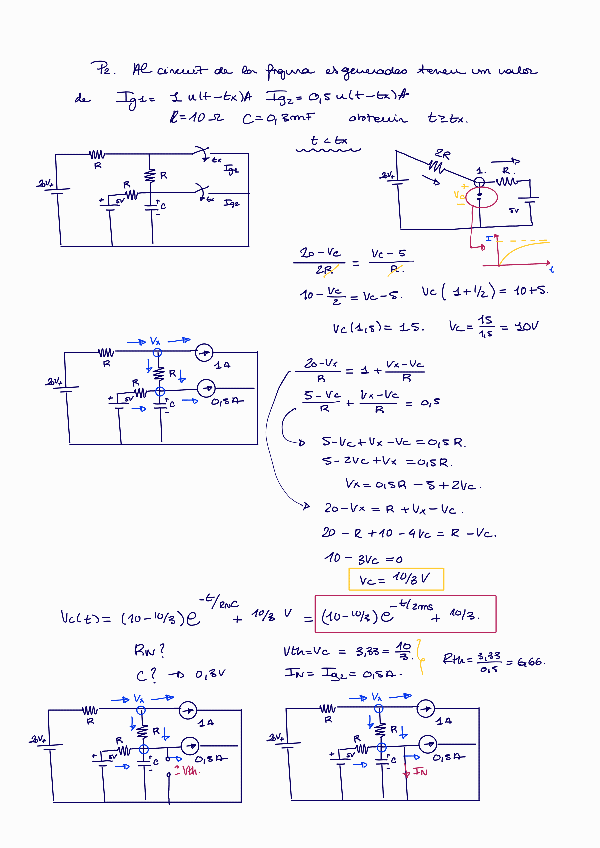 P2. Al circuit de la figura es generades tenen un valor
de Ig1 = 1 u(t-tx)A Ig2 = 0,5 u(t-tx)A
R=10 Ω C=0,3mF obtenir t≥tx.
t < tx
20V+
R
tx
Ig2
R
R
5V
C
tx
Ig2
20V+
2R
1.
R
Vc
5V
I
t
20-Vc / 2R = Vc-5 / R
10 - Vc/2 = Vc-5. Vc ( 1+1/2) = 10+5.
Vc(1,5) = 15. Vc = 15/1,5 = 10V
20V+
R
Vx
1A
R
R
5V
C
0,5A
20-Vx / R = 1 + Vx-Vc / R
5-Vc / R + Vx-Vc / R = 0,5
5-Vc+Vx-Vc = 0,5R.
5-2Vc+Vx = 0,5R.
Vx = 0,5R - 5+2Vc.
20-Vx = R+Vx-Vc.
20-R+10-4Vc = R-Vc.
10-3Vc = 0
Vc = 10/3 V
Vc(t) = (10-10/3) e^-t/RNC + 10/3 V = (10-10/3) e^-t/2ms + 10/3.
RN?
C? → 0,3V
Vth=Vc = 3,33 = 10/3.
IN = Ig2 = 0,5A.
Rth = 3,33/0,5 = 6,66.
20V+
R
Vx
1A
R
R
5V
C
0,5A
Vth.
20V+
R
Vx
1A
R
R
5V
C
0,5A
IN